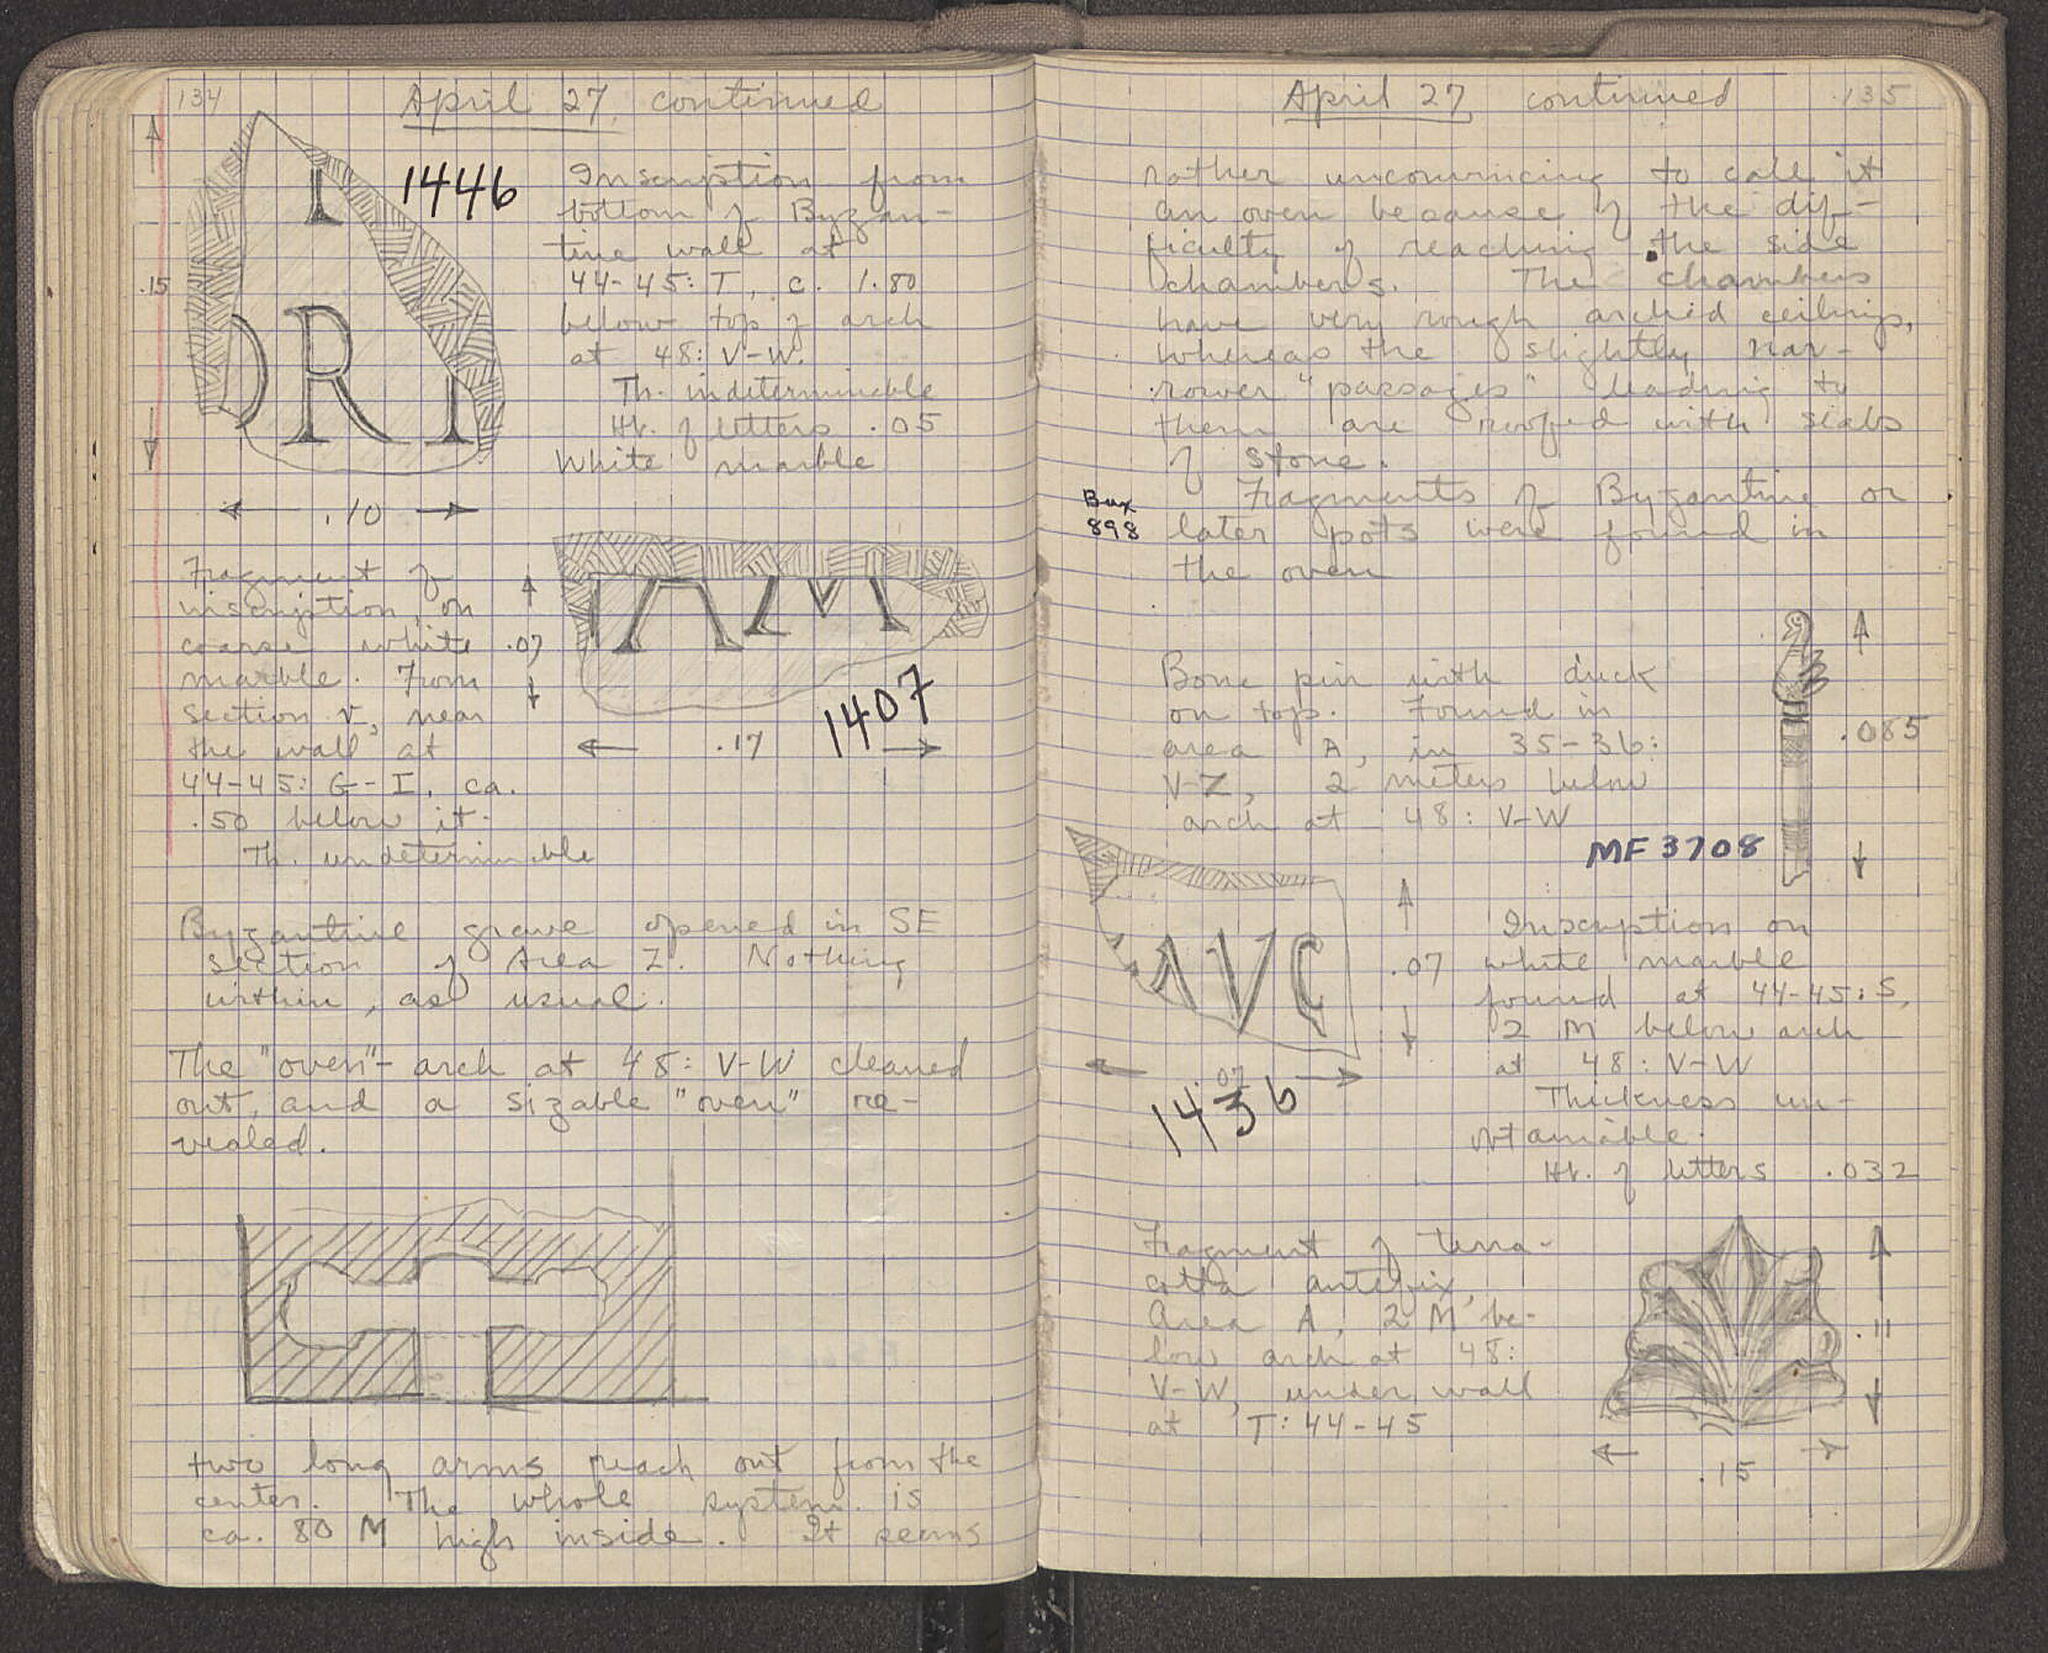 134
April 27 continued
I
ORI
.15
.10
1446
Inscription from
bottom of Byzan-
tine wall at
44-45: T, c. 1.80
below top of arch
at 48: V-W.
Th. indeterminable
Ht. of letters .05
White marble
Fragment of
inscription on
coarse white
marble. From
section V, near
the wall at
44-45: G-I, ca.
.50 below it.
Th. undeterminable
.07
AM
.17
1407
Byzantine grave opened in SE
section of Area Z. Nothing
within, as usual.
The "oven"-arch at 48: V-W cleaned
out, and a sizable "oven" re-
vealed.
two long arms reach out from the
center. The whole system is
ca. 80 M high inside. It seems
April 27 continued
135
rather unconvincing to call it
an oven because of the dif-
ficulty of reaching the side
chambers. The chambers
have very rough arched ceilings,
whereas the slightly nar-
rower "passages" leading to
them are roofed with slabs
of stone.
Fragments of Byzantine or
Box
898
later pots were found in
the oven
Bone pin with duck
on top. Found in
area A, in 35-36:
V-Z, 2 meters below
arch at 48: V-W
.085
MF 3708
AVC
.07
.07
1436
Inscription on
white marble
found at 44-45: S,
2 M below arch
at 48: V-W
Thickness un-
obtainable.
Ht. of letters .032
Fragment of terra-
cotta antefix,
Area A, 2 M be-
low arch at 48:
V-W, under wall
at T: 44-45
.11
.15